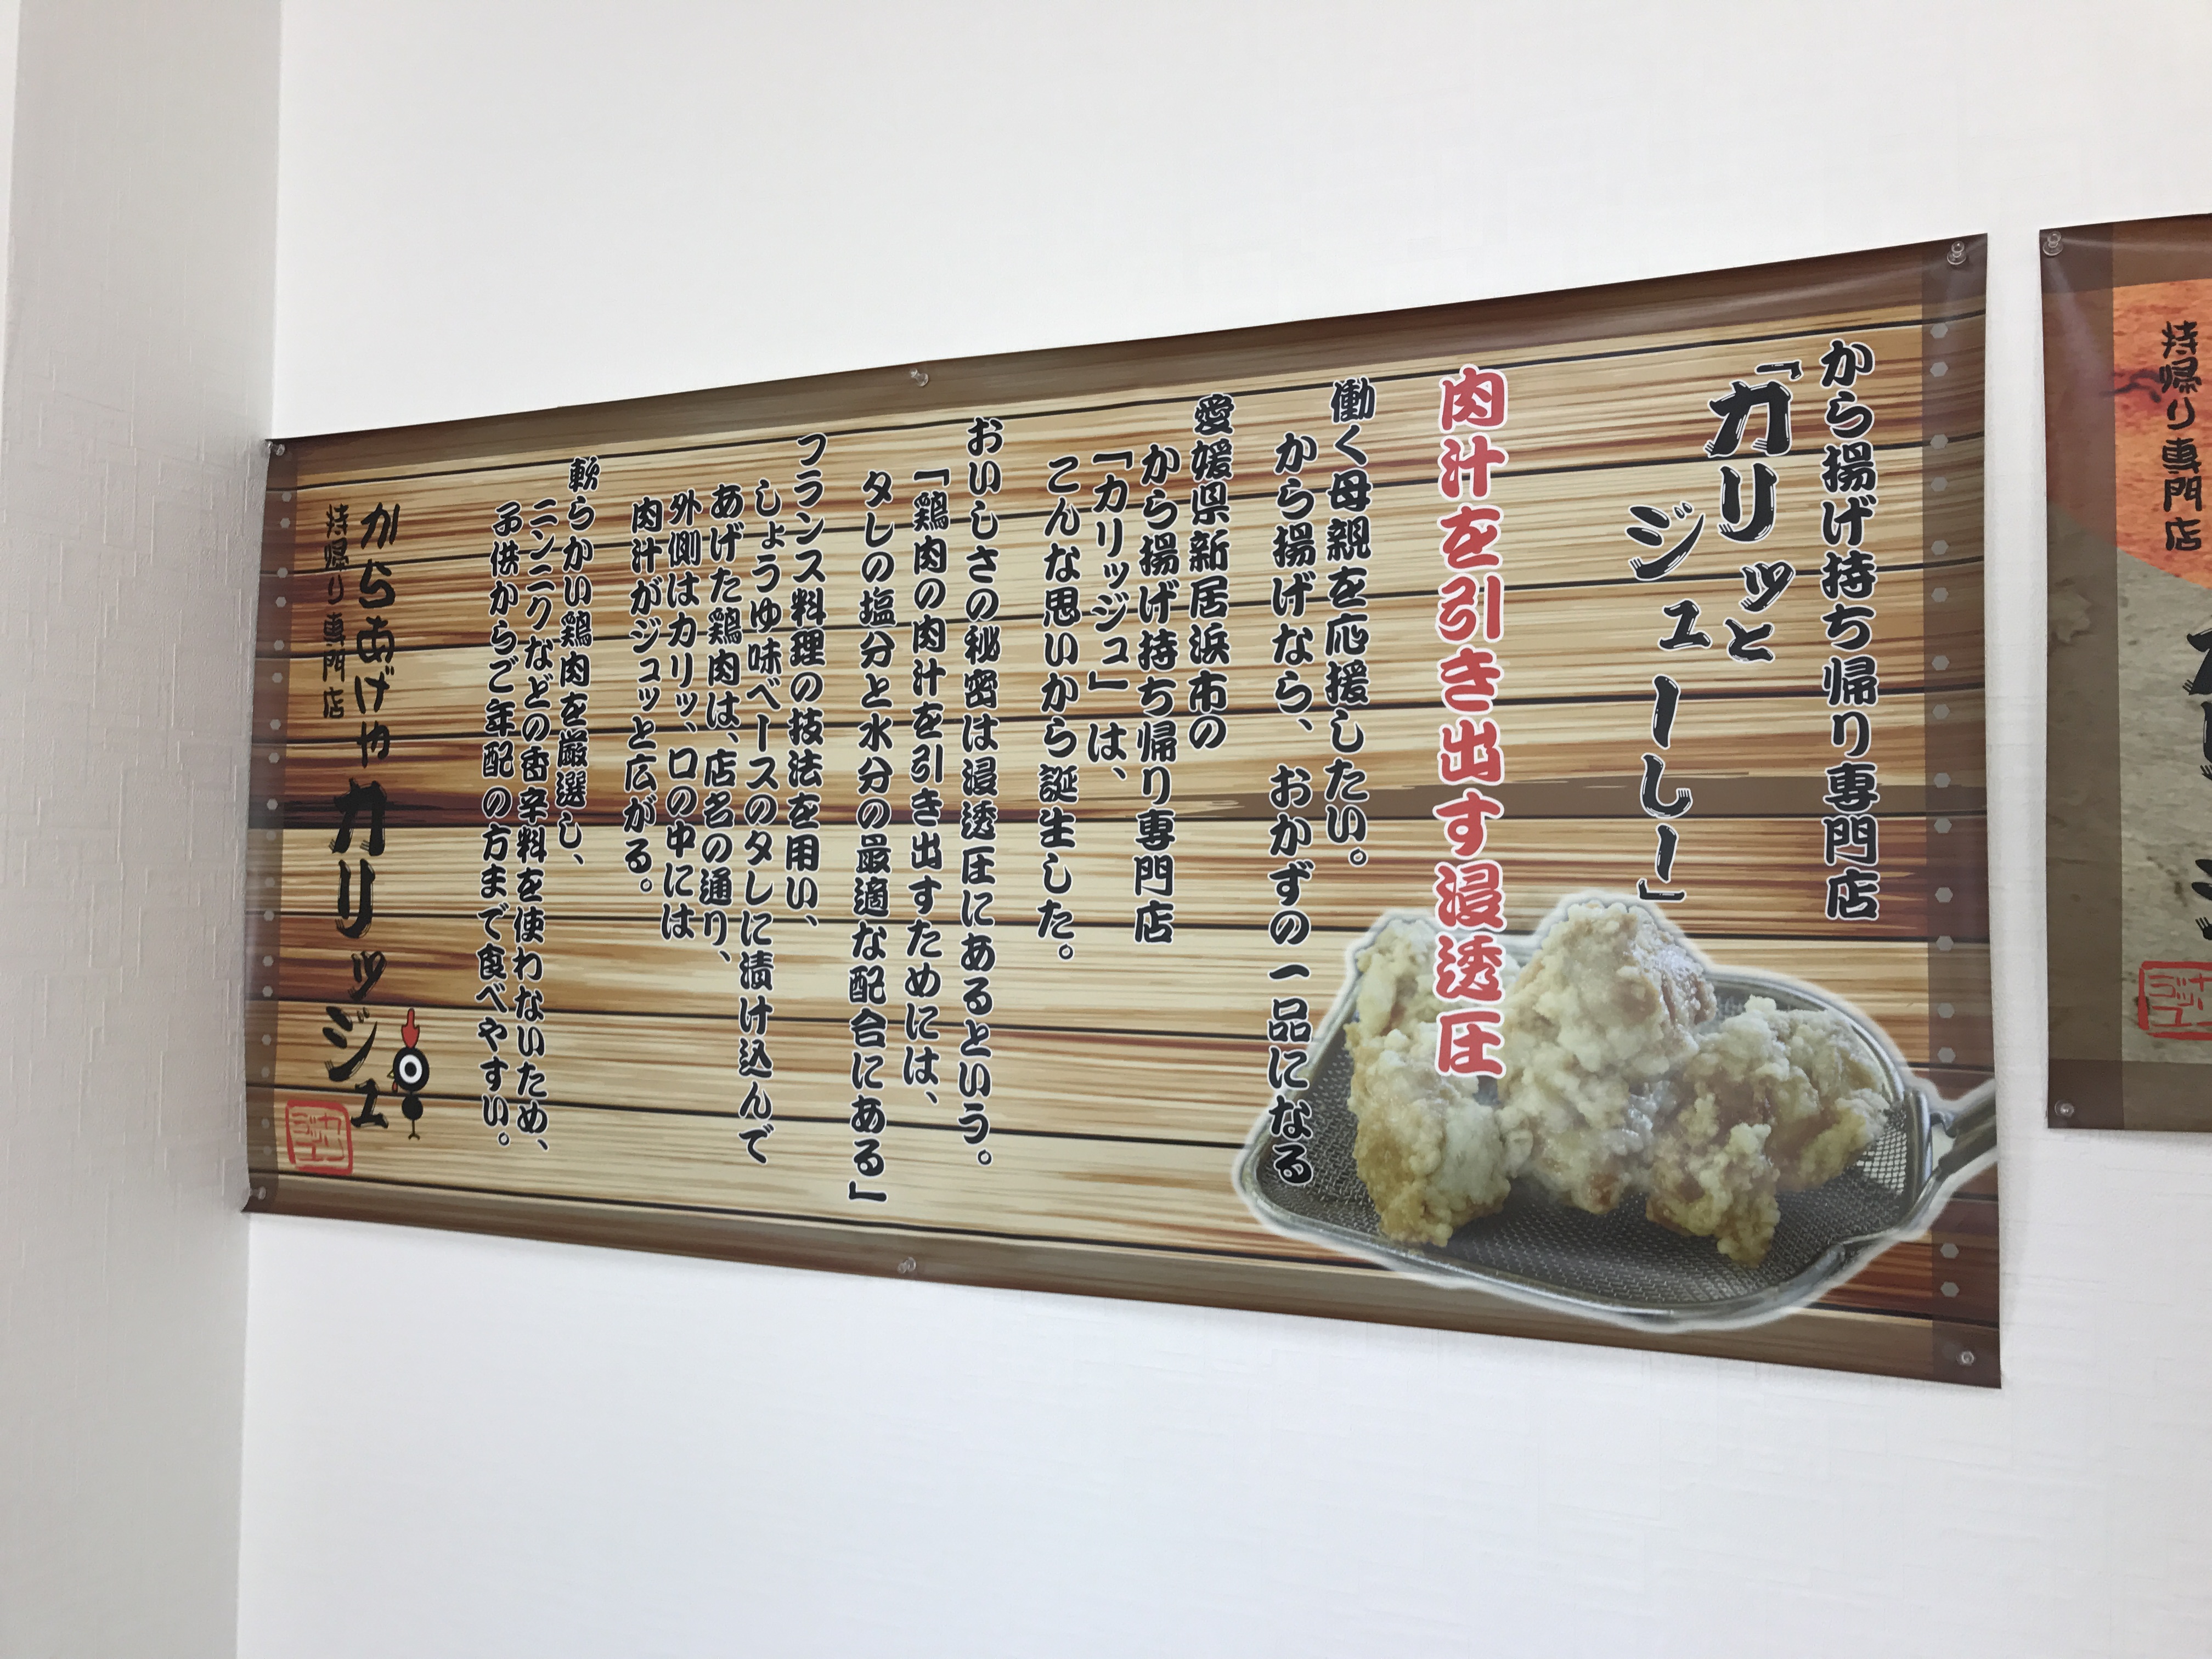 から揚げ持ち帰り専門店
「カリッと
ジューしー」
肉汁を引き出す浸透圧
働く母親を応援したい。
から揚げなら、おかずの一品になる
愛媛県新居浜市の
から揚げ持ち帰り専門店
「カリッジュ」は、
こんな思いから誕生した。
おいしさの秘密は浸透圧にあるという。
「鶏肉の肉汁を引き出すためには、
タレの塩分と水分の最適な配合にある」
フランス料理の技法を用い、
しょうゆ味ベースのタレに漬け込んで
あげた鶏肉は、店名の通り、
外側はカリッ、口の中には
肉汁がジュッと広がる。
軟らかい鶏肉を厳選し、
ニンニクなどの香辛料を使わないため、
子供からご年配の方まで食べやすい。
からあげや カリッジュ
持帰り専門店
カリッジュ
持帰り専門店